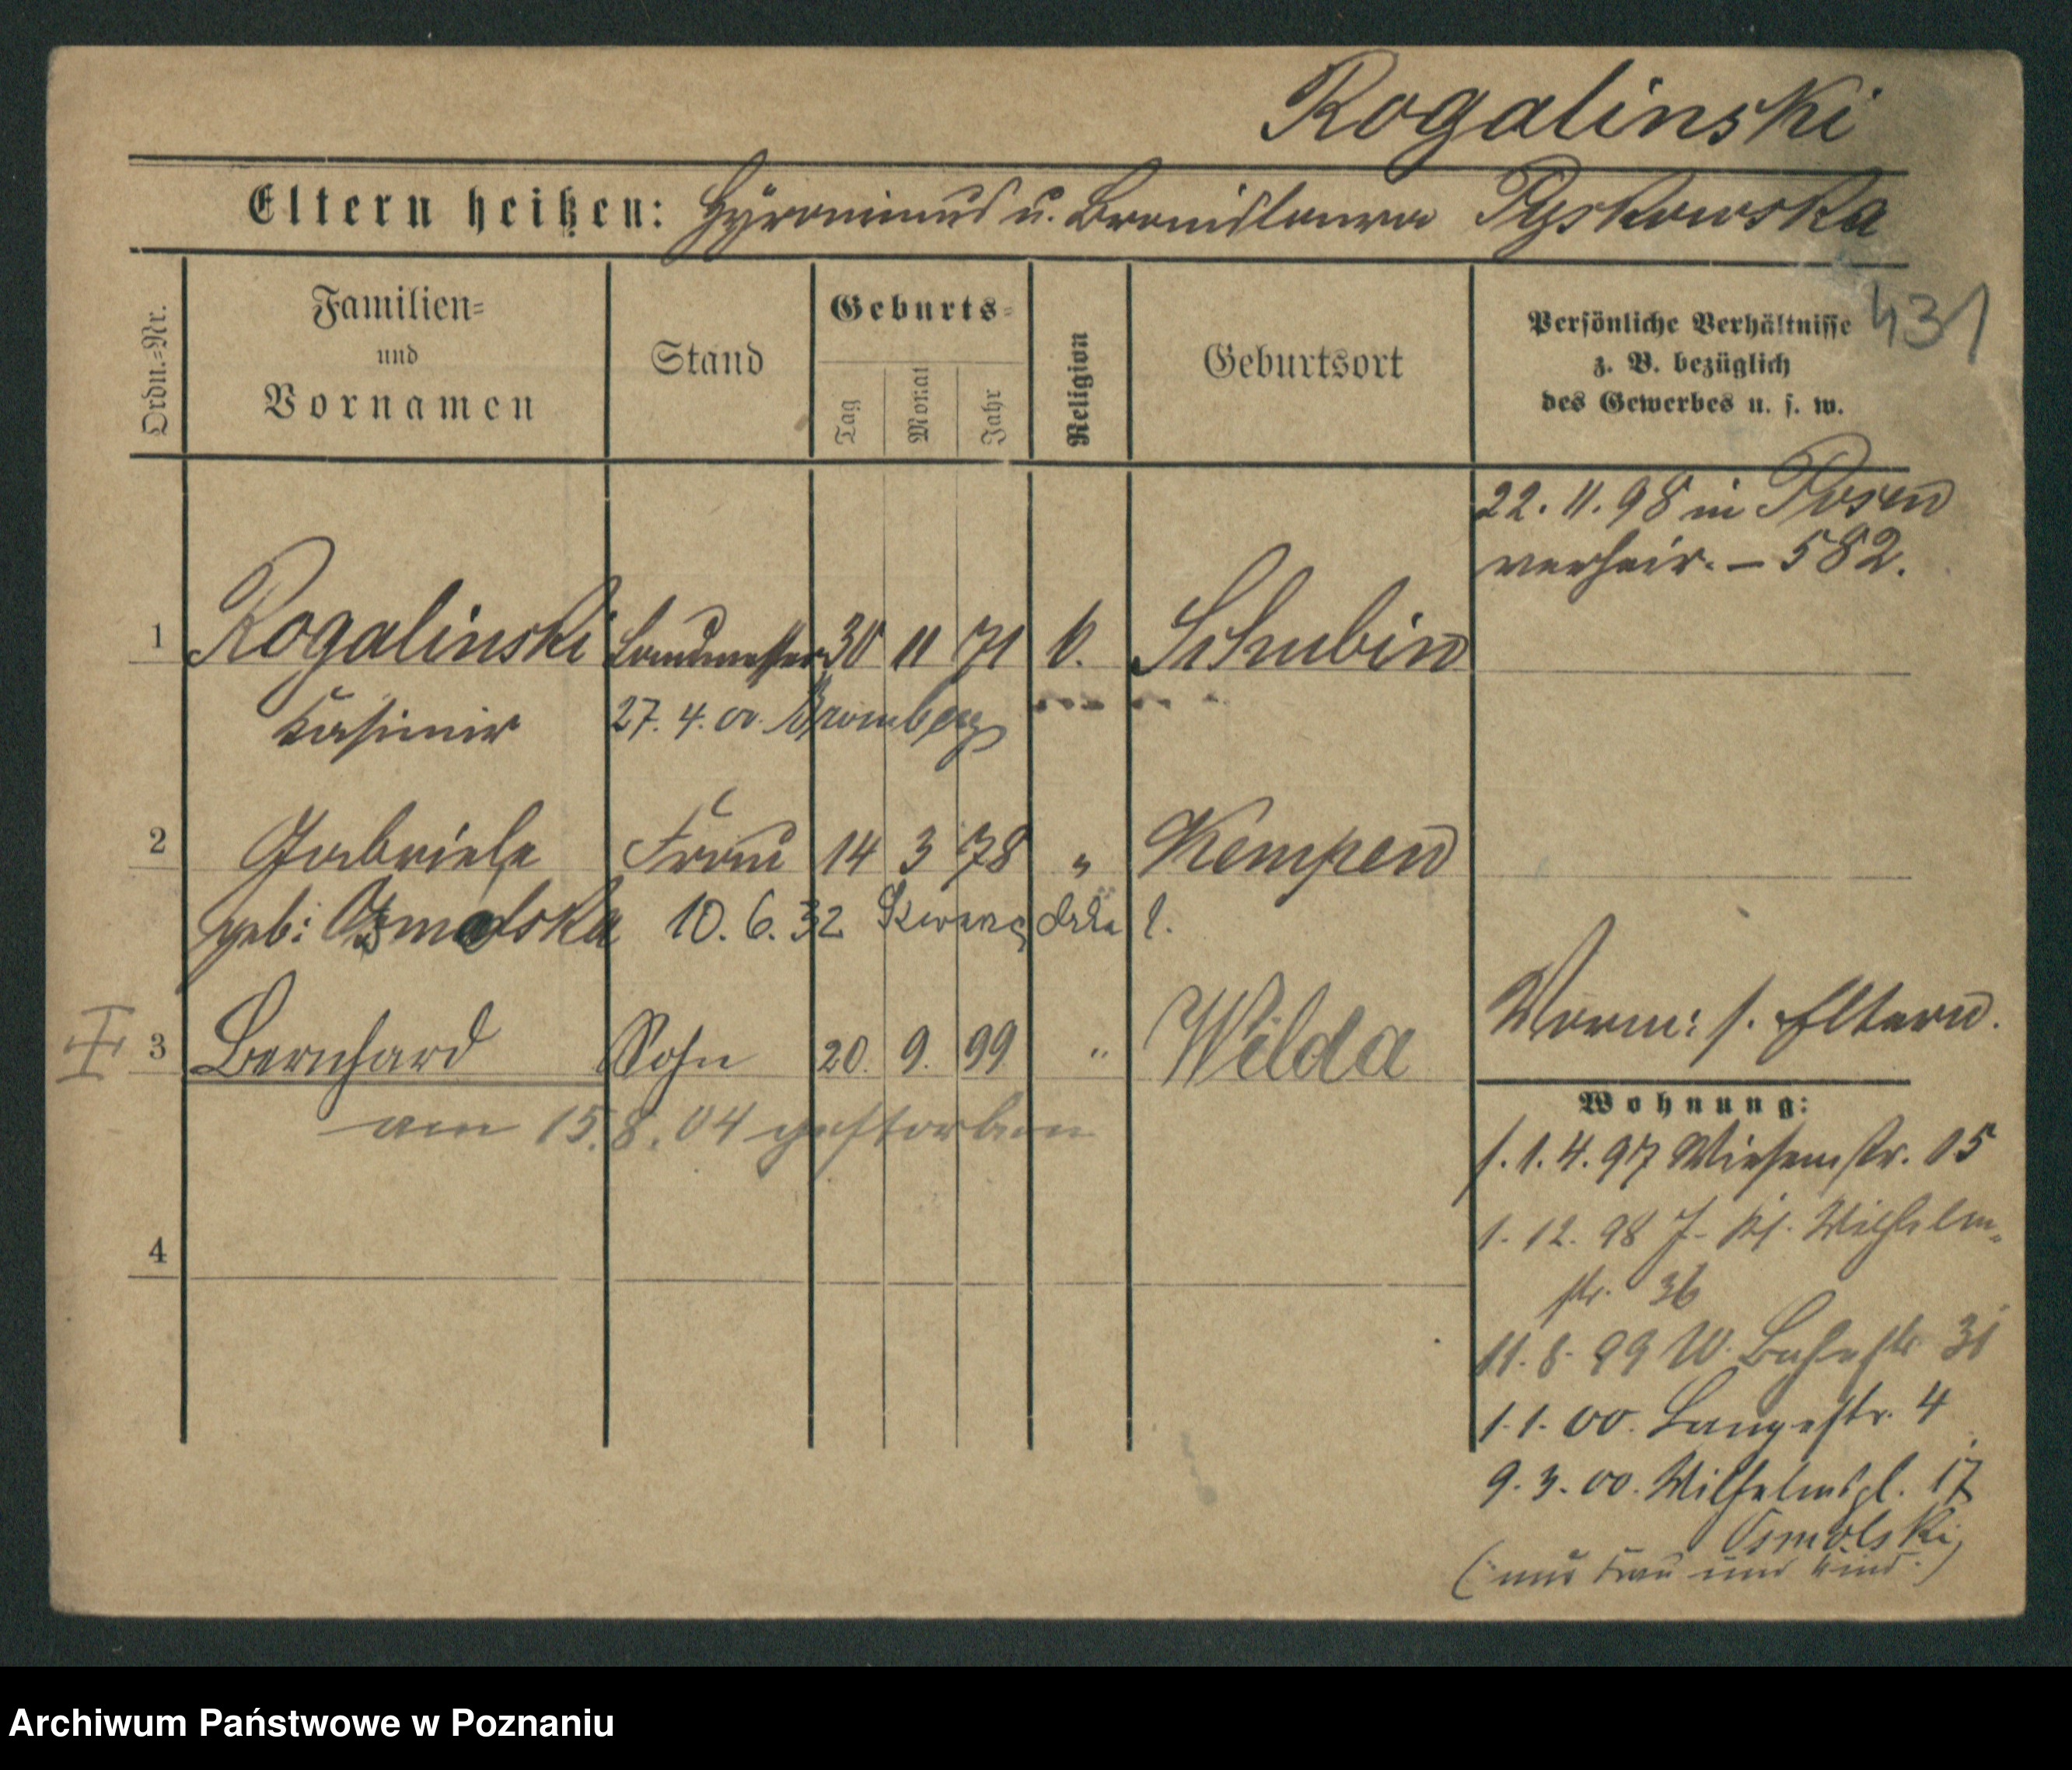 Rogalinski
Eltern heißen: Hyronimus u. Bronislawa Pyskowska
431
Ordn.-Nr.
Familien-
und
Vornamen
Stand
Geburts-
Tag
Monat
Jahr
Religion
Geburtsort
Persönliche Verhältnisse
z. B. bezüglich
des Gewerbes u. s. w.
22. 11. 98 in Posen
verheir. – 582.
1 Rogalinski Landmesser 30 11 71 k. Schubin
Kasimir 27. 4. 00. Bromberg
2 Gabriele Frau 14 3 78 " Kempen
geb: Osmolska 10. 6. 32
3 Bernhard Sohn 20. 9. 99 " Wilda
am 15. 8. 04 gestorben
4
Vorm: s. Eltern.
Wohnung:
1. 4. 97 Wiesenstr. 15
1. 12. 98 J. Wilhelm-
str. 36
11. 8. 99 W. Bahnstr. 31
1. 1. 00. Langestr. 4
9. 3. 00. Wilhelmspl. 17
Osmolski
(nur Frau und Kind.)
Archiwum Państwowe w Poznaniu